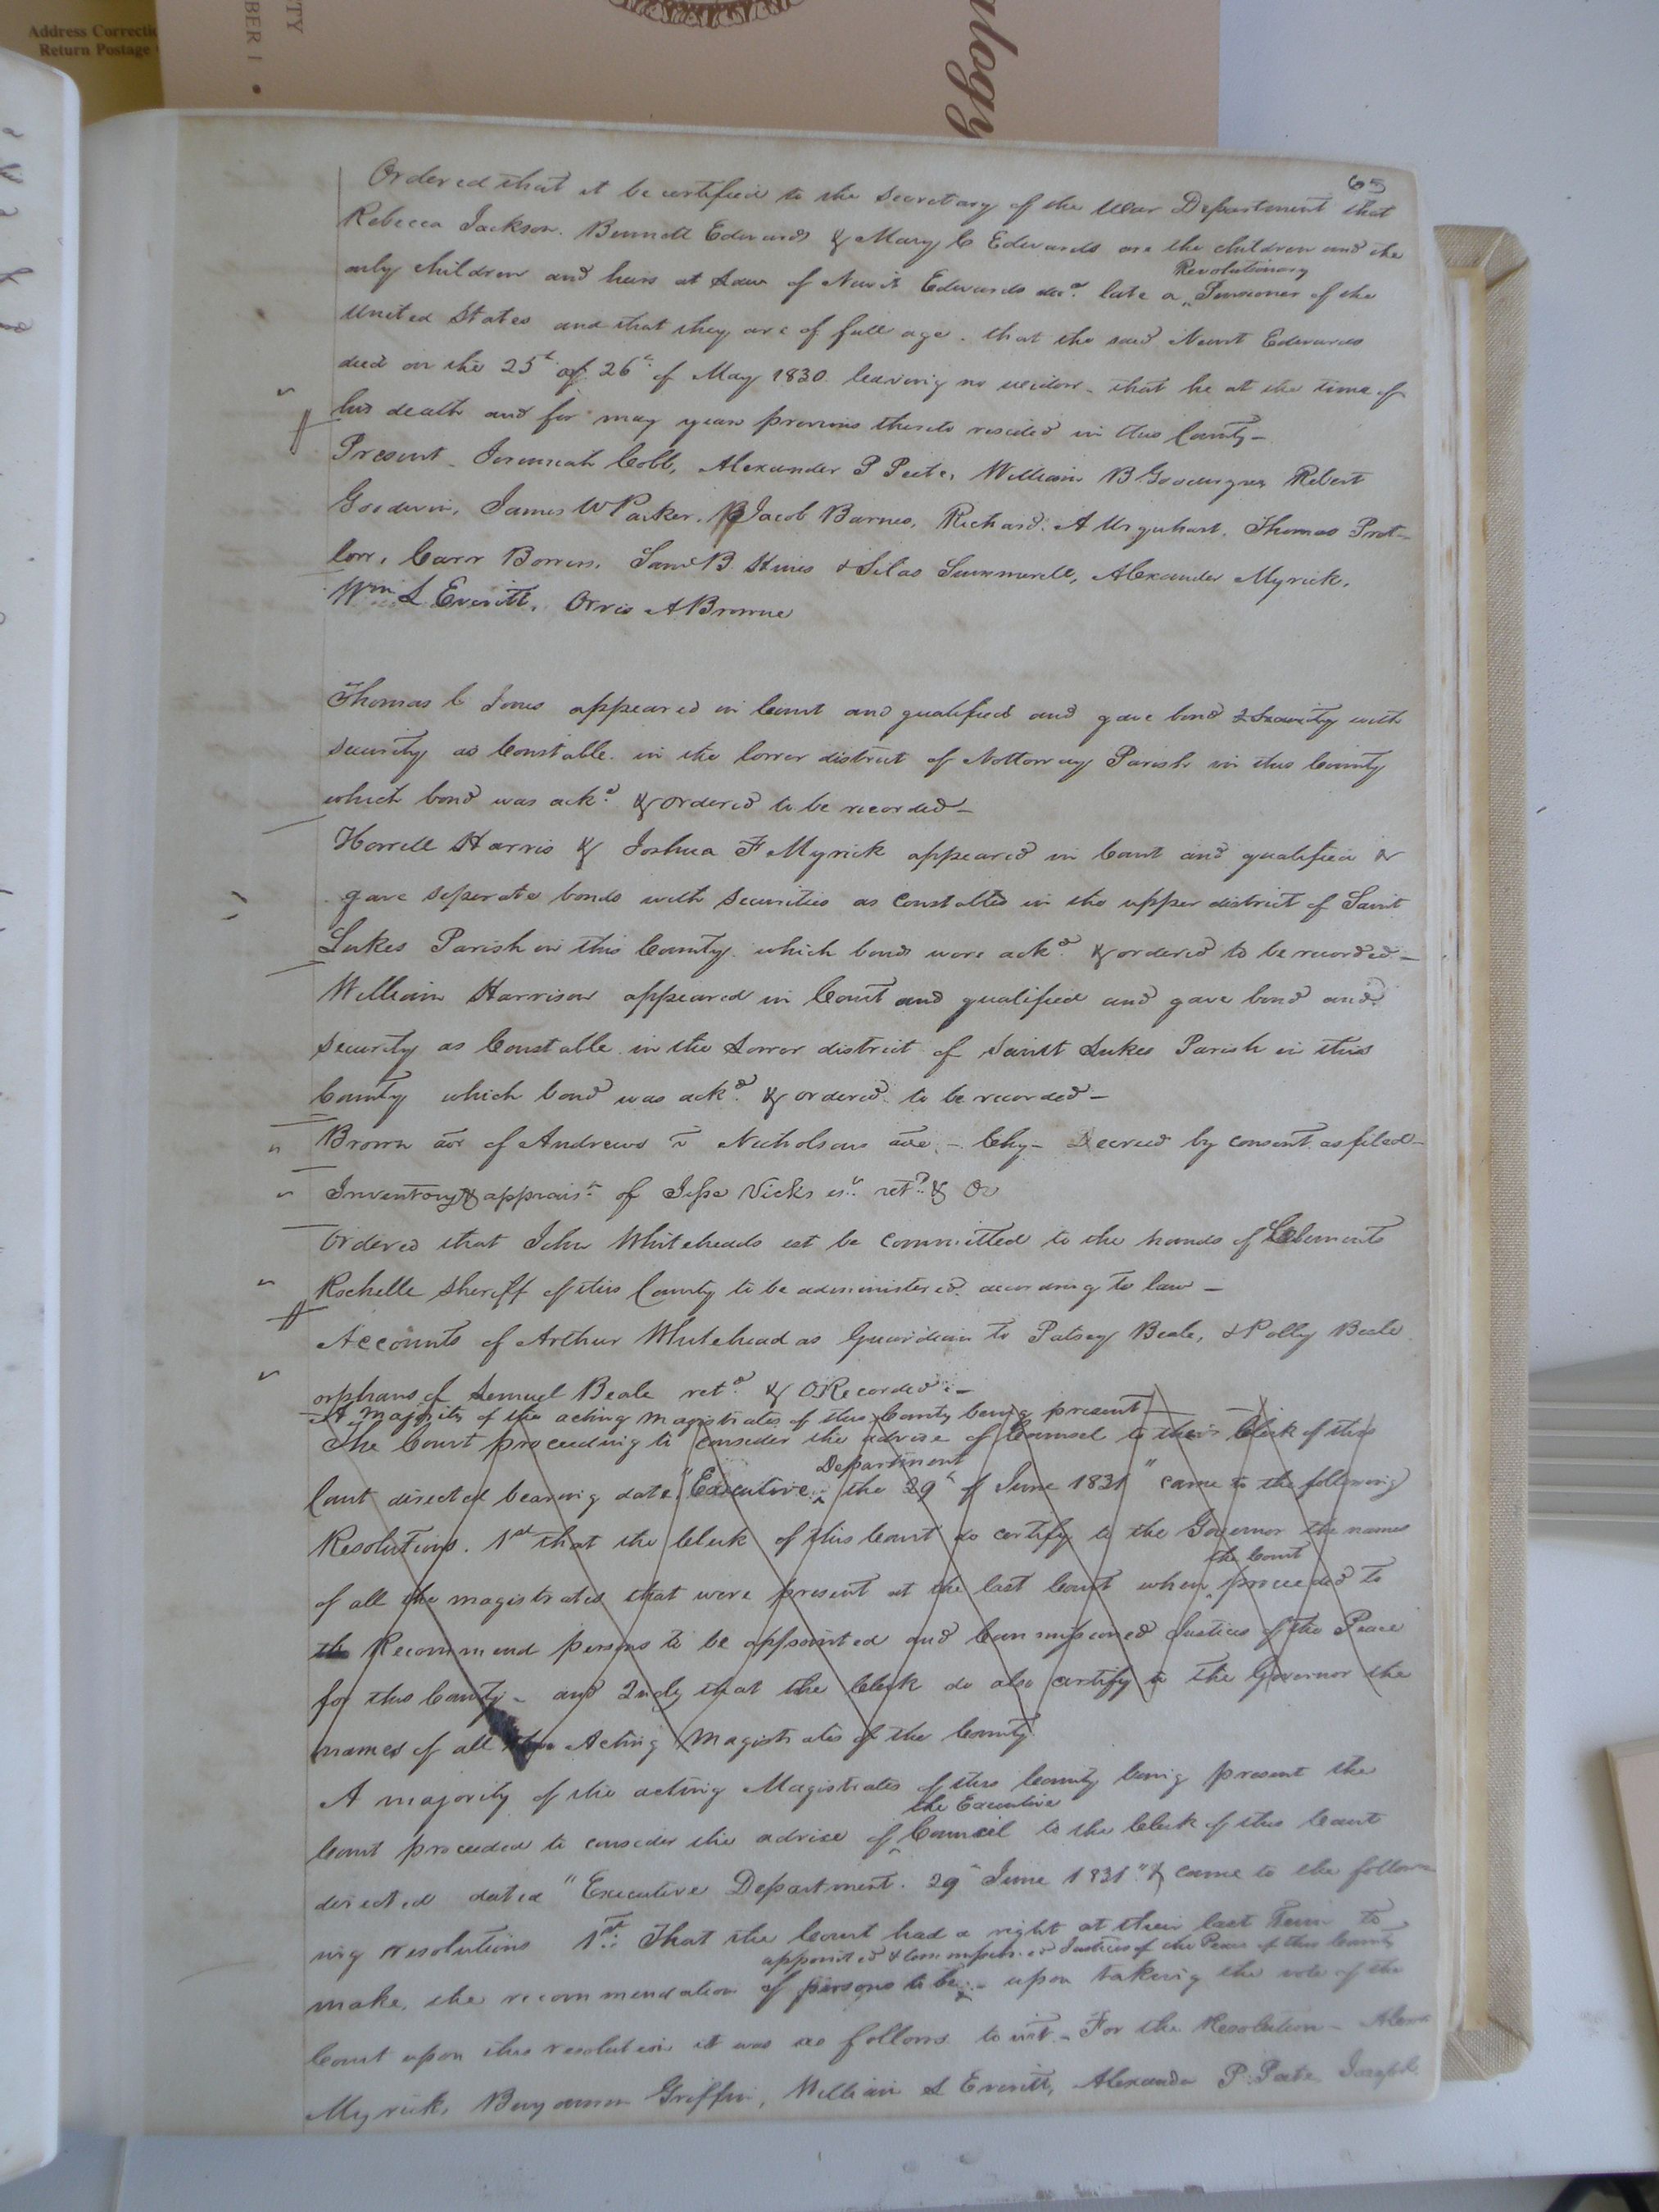 Address Correctio
Return Postage
TY
BER 1 •
logy
65
Ordered that it be certified to the Secretary of the War Department that
Rebecca Jackson. Bennett Edwards & Mary C Edwards are the children and the
only children and heirs at Law of Newit Edwards decd. late a Revolutionary Pensioner of the
United States and that they are of full age. that the said Newit Edwards
died on the 25t or 26t of May 1830 leaving no widow – that he at the time of
his death and for may years previous thereto resided in this County –
Present – Jeremiah Cobb, Alexander P Peete, William B Goodwyn, Robert
Goodwin, James W Parker, Jacob Barnes, Richard. A Urquhart, Thomas Pret-
low, Carr Bowers, Saml B Hines & Silas Summerell, Alexander Myrick,
Wm L Everitt, Orris A Browne
Thomas C Jones appeared in Court and qualified and gave bond & Security with
security as Constable in the lower district of Nottoway Parish in this County
which bond was ackd. & ordered to be recorded –
Howell Harris & Joshua F Myrick appeared in Court and qualified &
gave seperate bonds with Securities as Constables in the upper district of Saint
Lukes Parish in this County. which bonds were ackd. & ordered to be recorded –
William Harrison appeared in Court and qualified and gave bond and
security as Constable in the Lower district of Saint Lukes Parish in this
County which bond was ackd. & ordered to be recorded –
Brown aor of Andrews v Nicholsons – Chy – Decreed by consent as filed –
Inventory & apprais.t of Jesse Vicks es.t ret.d & Or
Ordered that John Whiteheads est be committed to the hands of Clements
Rochelle Sheriff of this County to be administered according to law –
Accounts of Arthur Whitehead as Guardian to Patsey Beale, & Polly Beale
orphans of Lemuel Beale retd. & ORecorded –
A majority of the acting magistrates of this County being present
The Court proceeding to consider the advice of Counsel to their Clerk of this
Court directed bearing date "Executive Department the 29th of June 1831" came to the following
Resolutions. 1st that the Clerk of this Court do certify to the Governor the names
of all the magistrates that were present at the last Court when the Court proceeded to
the Recommend persons to be appointed and Commissioned Justices of the Peace
for this County – and 2ndly that the Clerk do also certify to the Governor the
names of all the Acting Magistrates of the County
A majority of the acting Magistrates of this County being present the
Court proceeded to consider the advice of the Executive Council to the Clerk of this Court
directed dated "Executive Department. 29th June 1831" & came to the follow-
ing resolutions 1st: That the Court had a right at their last Term to
make, the recommendation of persons to be appointed & Commissioned Justices of the Peace of this County upon taking the vote of the
Court upon this resolution it was as follows to wit – For the Resolution – Alexr
Myrick, Benjamin Griffin, William L Everitt, Alexander P. Peete, Joseph